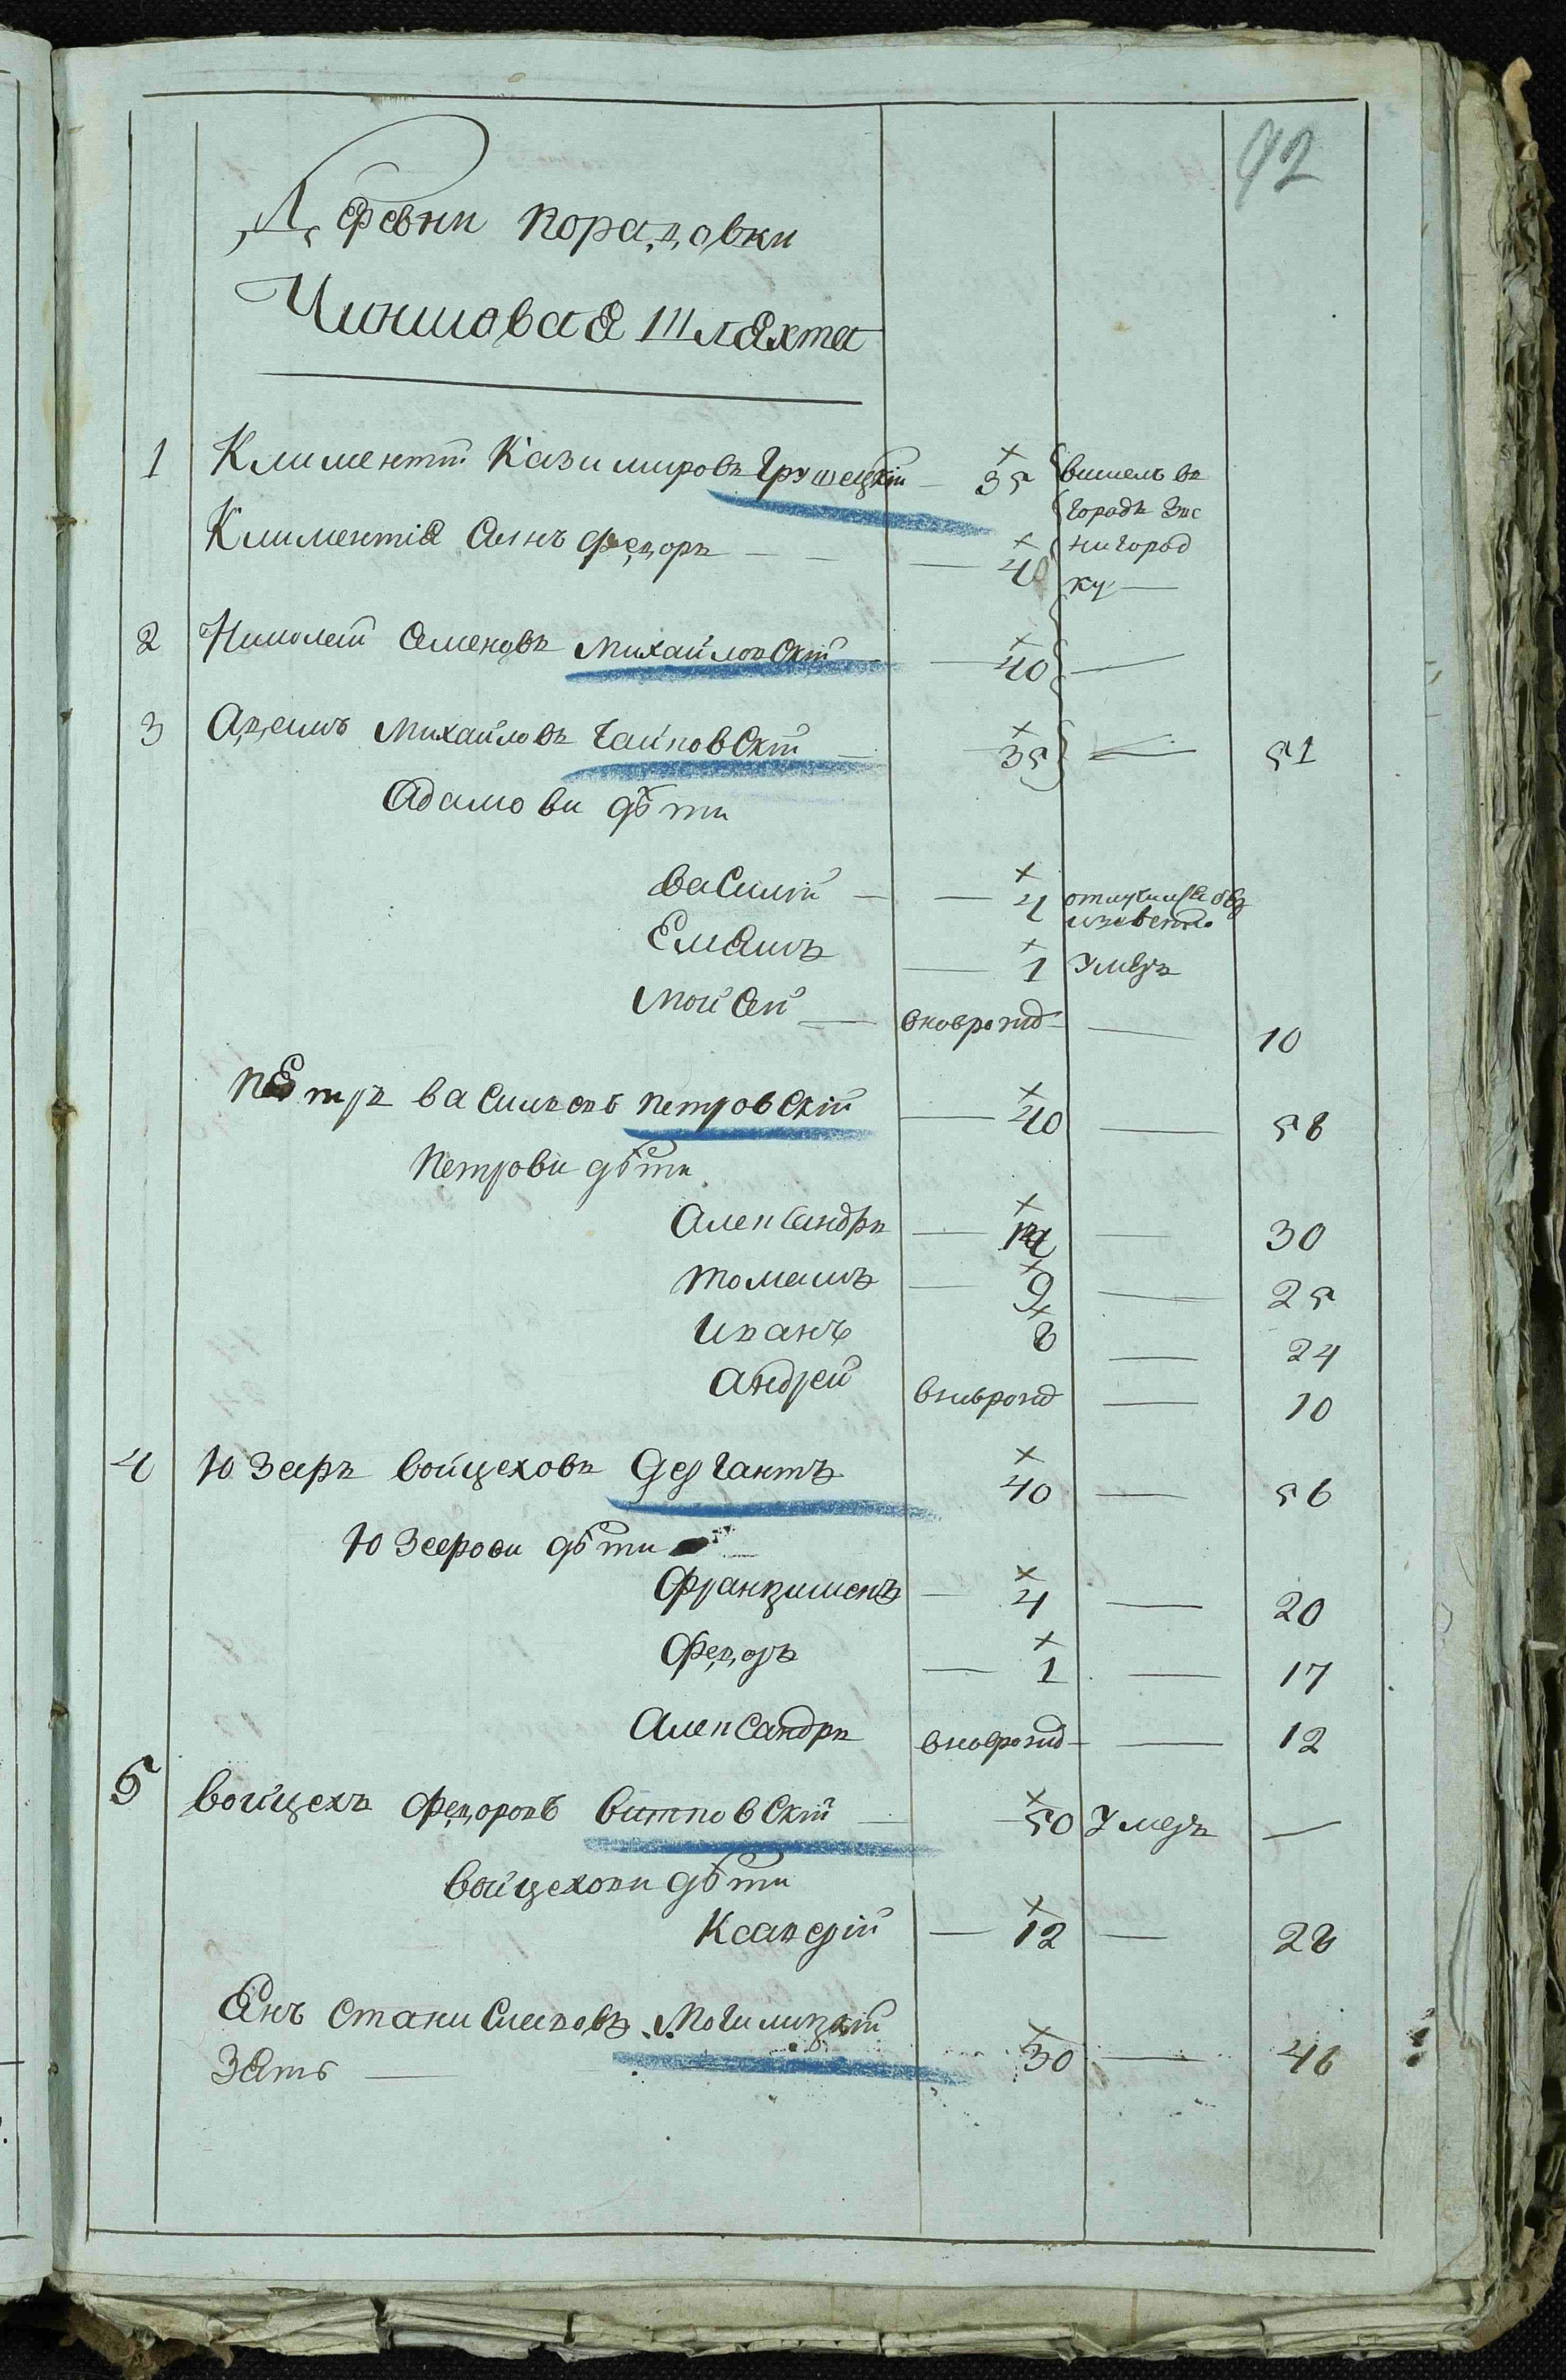 92
Деревни Порадовки
Чиншовая Шляхта
1 Климентій Казимировъ Грушецкій — 35 вишелъ въ
городъ Зве
нигород
ку —
Климентія Синъ Федоръ — — 40
2 Николай Семеновъ Михайловскій — 40 —
3 Адамъ Михайловъ Чайковскій — 35 — 51
Адамови дѣти
Василій — 4 отлучился безъ
извѣстно
Емаелъ — 1 умеръ
Мойсей — вноврожд — 10
Петръ Васильевъ Петровскій — 40 — 58
Петрови дѣти
Александръ — 14 — 30
Томашъ — 9 — 25
Иванъ 8 — 24
Андрей вноврожд — 10
4 Юзефъ Войцеховъ Дергантъ 40 — 56
Юзефови дѣти
Францишекъ — 4 — 20
Федоръ — 1 — 17
Александръ вноврожд — 12
5 Войцехъ Федоровъ Витковскій — 50 умеръ —
Войцехови дѣти
Ксаверій — 12 — 28
Янъ Станиславовъ Могилицкій
Зять — 30 — 46